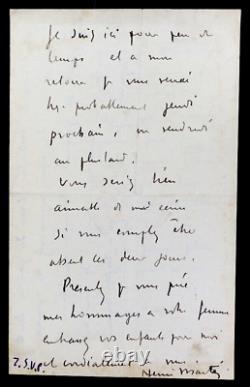 Je suis ici pour peu de
temps et a mon
retour je vous
probablement jeudi
prochain, ou vendredi
au plus tard.
Vous seriez bien
aimable de
si vous comptez être
absent ces deux jours.
Présentez je vous prie
mes hommages a votre femme
embrassez vos enfants pour moi
et cordialement a vous
Henri Martin
T.S.V.P.
© 123